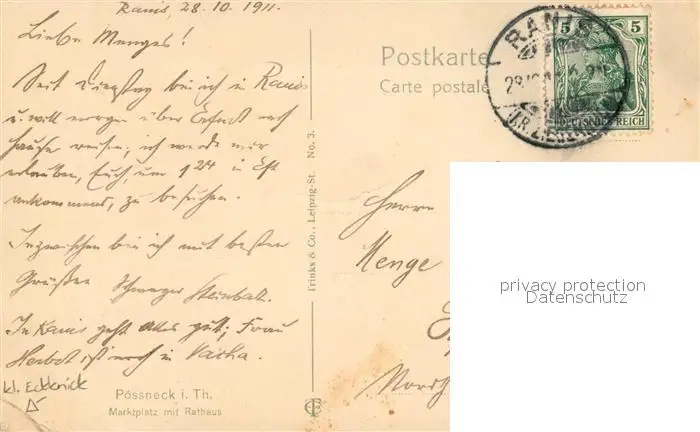 Ranis, 28.10.1911.
Liebe Menges!
Seit Dienstag bin ich in Ranis
u. will morgen über Erfurt nach
Hause reisen; ich werde mir
erlauben, Euch, um 1 24 in Erf.
ankommend, zu besuchen.
Inzwischen bin ich mit besten
Grüßen Schwager
In Ranis geht alles gut; Frau
Herbst ist noch in Vacha.
kl. Eckknick
Pössneck i. Th.
Marktplatz mit Rathaus
Trinks & Co., Leipzig-St. No. 3.
Postkarte
Carte postale
5 5
DEUTSCHES REICH
RANIS
Herrn
Menge
privacy protection
Datenschutz